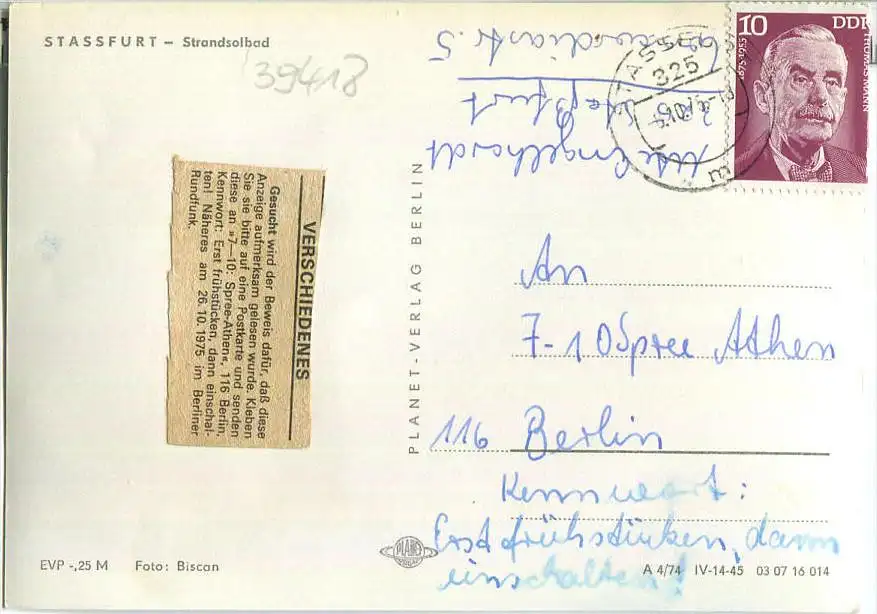 STASSFURT – Strandsolbad
39418
VERSCHIEDENES
Gesucht wird der Beweis dafür, daß diese
Anzeige aufmerksam gelesen wurde. Kleben
Sie sie bitte auf eine Postkarte und senden
diese an »7—10: Spree-Athen«, 116 Berlin,
Kennwort: Erst frühstücken, dann einschal-
ten! Näheres am 26. 10. 1975 im Berliner
Rundfunk.
EVP -,25 M Foto: Biscan
PLANET-VERLAG BERLIN
Ute Engelhardt
325 Staßfurt
STASSFU
325
m
10 DDR
THOMAS MANN
1875-1955
An
7-10 Spree Athen
116 Berlin
Kennwort:
Erst frühstücken, dann
einschalten!
PLANET
VERLAG
A 4/74 IV-14-45 03 07 16 014